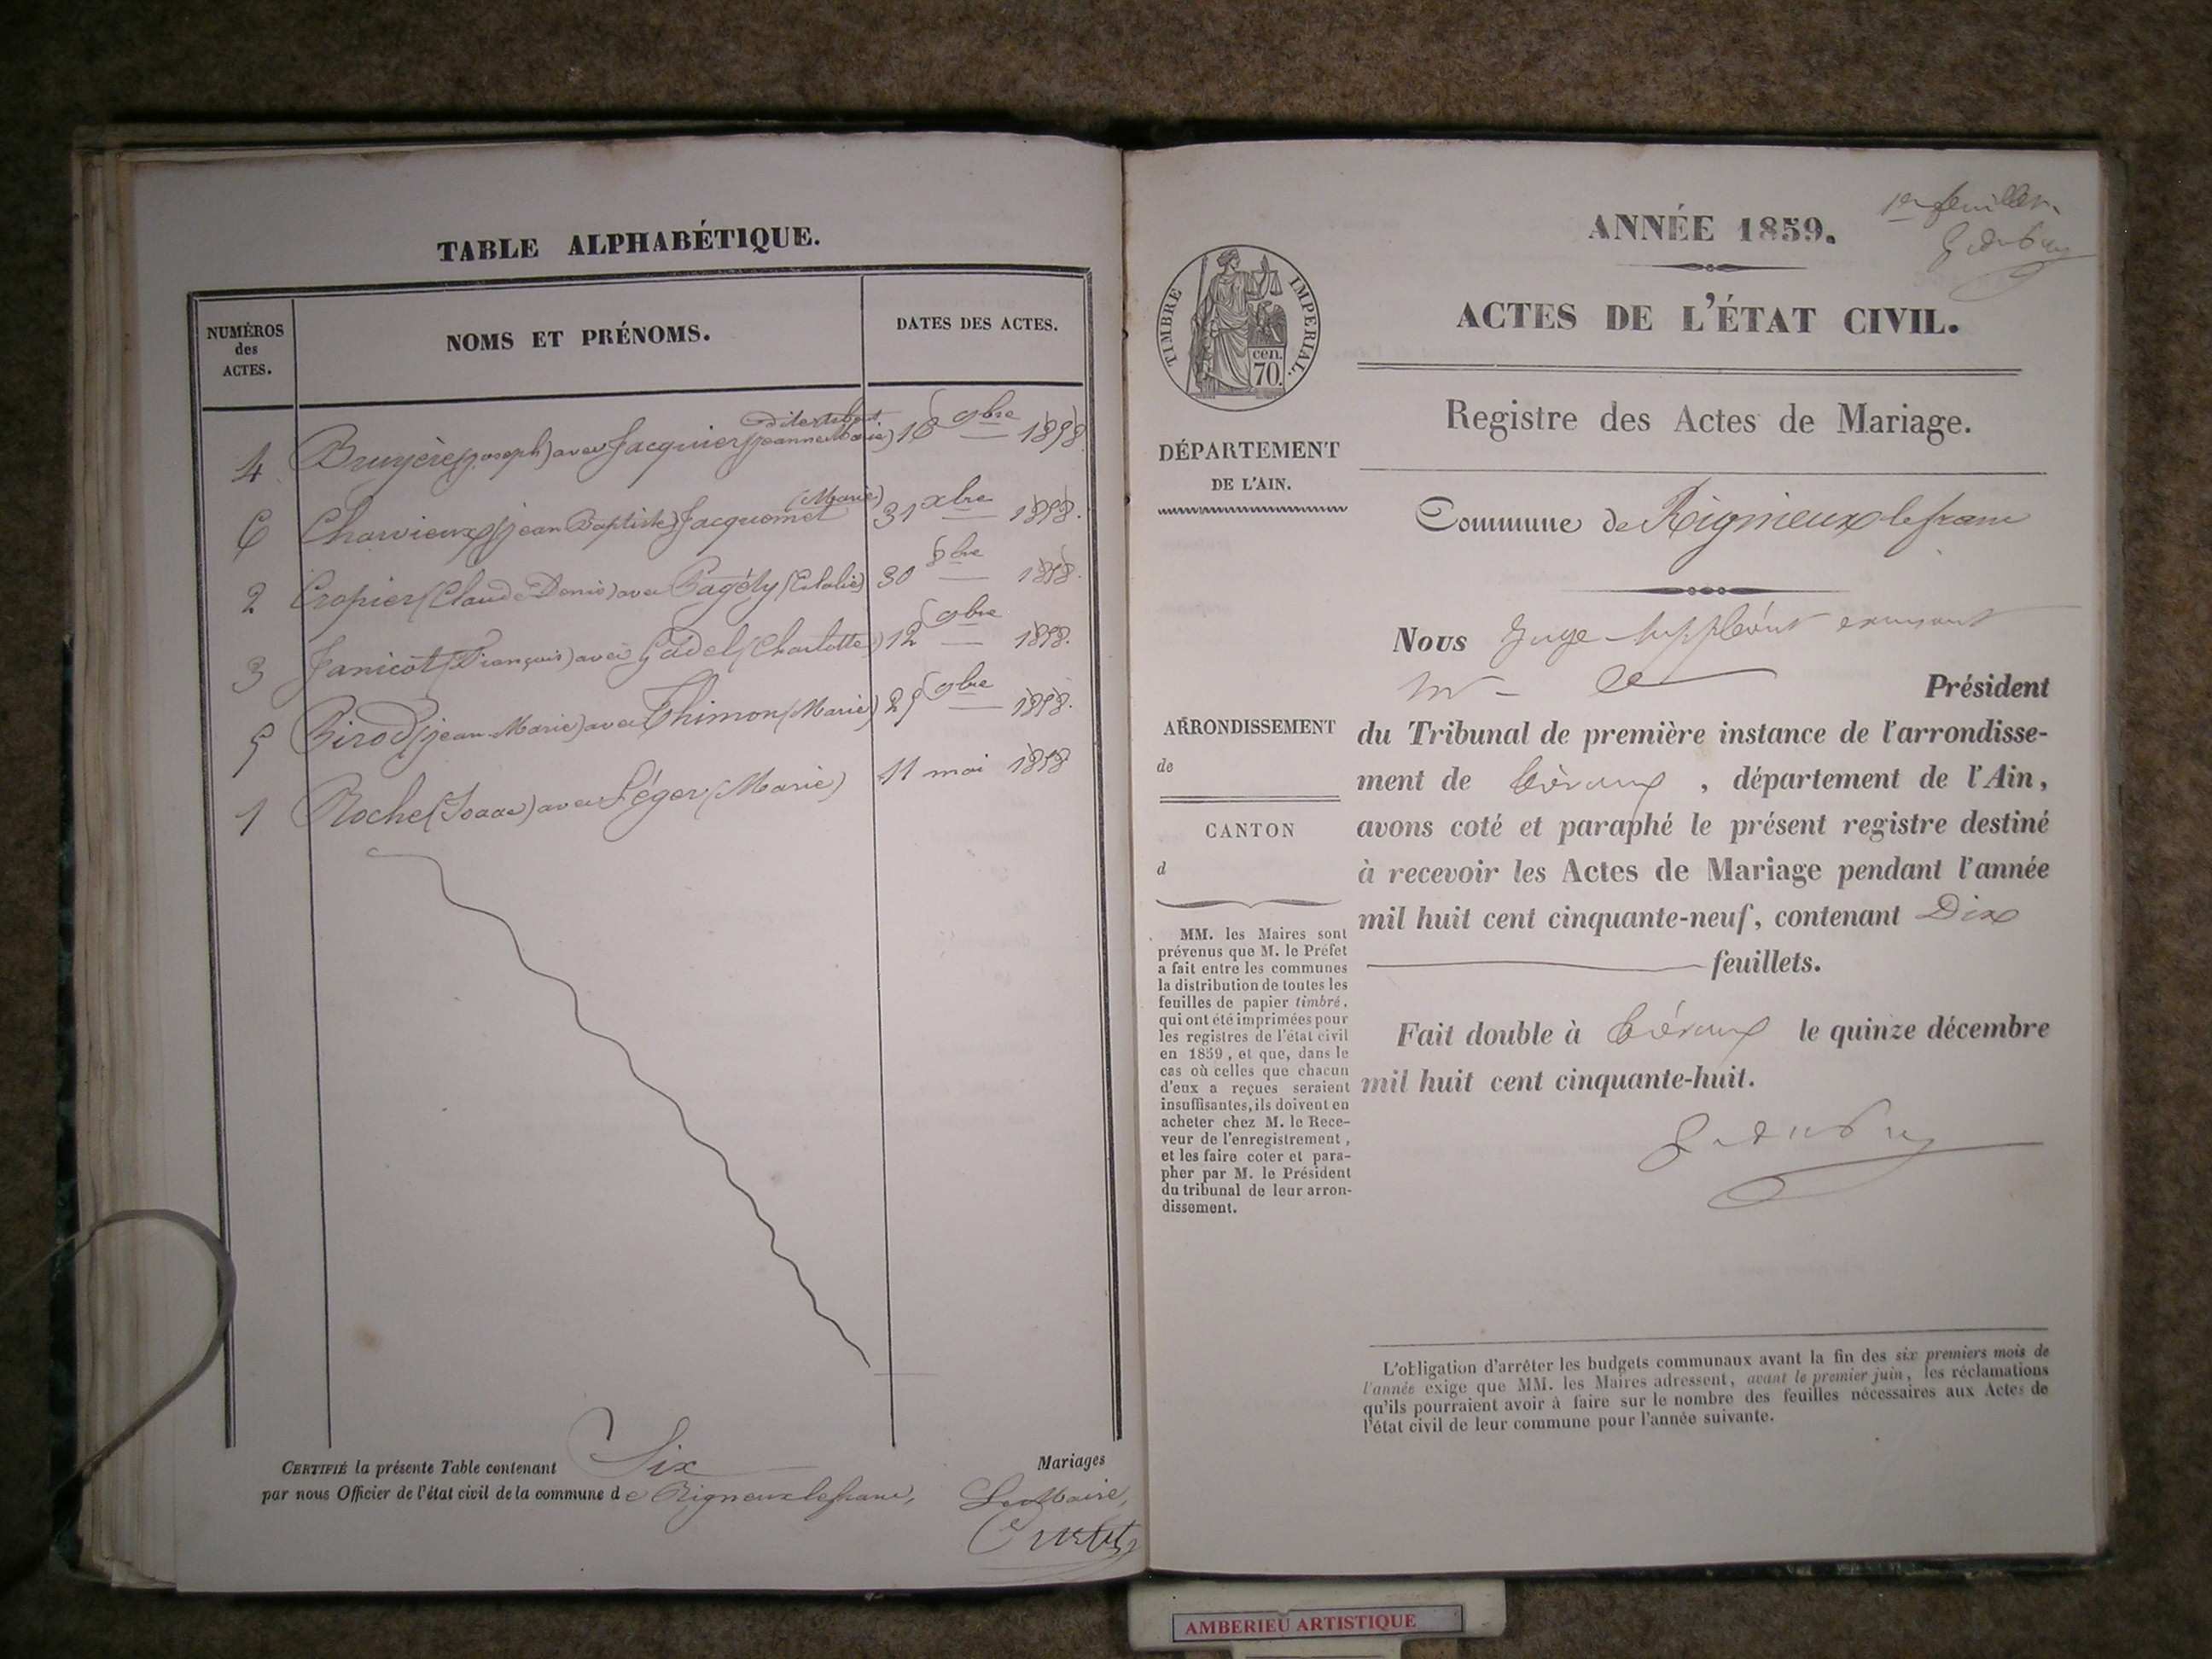 TABLE ALPHABÉTIQUE.
NUMÉROS
des
ACTES.
NOMS ET PRÉNOMS.
DATES DES ACTES.
4 Bruyère (joseph) avec Jacquier (jeanne Marie) 18 9bre 1858
6 Charvieux (jean Baptiste) Jacquemet (Marie) 31 xbre 1858.
2 Cropier (Claude Denis) avec Pagély (Eulalie) 30 8bre 1858.
3 Janicot (François) avec Gadel (Charlotte) 12 9bre 1858.
5 Pirod (jean Marie) avec Thimon (Marie) 25 9bre 1858.
1 Roche (Isaac) avec Léger (Marie) 11 mai 1858
CERTIFIÉ la présente Table contenant Six Mariages
par nous Officier de l'état civil de la commune de Rigneux le franc, Le Maire,
1er feuillet.
ANNÉE 1859.
ACTES DE L'ÉTAT CIVIL.
Registre des Actes de Mariage.
TIMBRE IMPERIAL.
cen.
70.
DÉPARTEMENT
DE L'AIN.
Commune de Rignieux le franc
Nous Juge Suppléant
Président
du Tribunal de première instance de l'arrondisse-
ment de Trévoux, département de l'Ain,
avons coté et paraphé le présent registre destiné
à recevoir les Actes de Mariage pendant l'année
mil huit cent cinquante-neuf, contenant Dix
feuillets.
Fait double à Trévoux le quinze décembre
mil huit cent cinquante-huit.
ARRONDISSEMENT
de
CANTON
d
MM. les Maires sont
prévenus que M. le Préfet
a fait entre les communes
la distribution de toutes les
feuilles de papier timbré,
qui ont été imprimées pour
les registres de l'état civil
en 1859, et que, dans le
cas où celles que chacun
d'eux a reçues seraient
insuffisantes, ils doivent en
acheter chez M. le Rece-
veur de l'enregistrement,
et les faire coter et para-
pher par M. le Président
du tribunal de leur arron-
dissement.
L'obligation d'arrêter les budgets communaux avant la fin des six premiers mois de
l'année exige que MM. les Maires adressent, avant le premier juin, les réclamations
qu'ils pourraient avoir à faire sur le nombre des feuilles nécessaires aux Actes de
l'état civil de leur commune pour l'année suivante.
AMBERIEU ARTISTIQUE